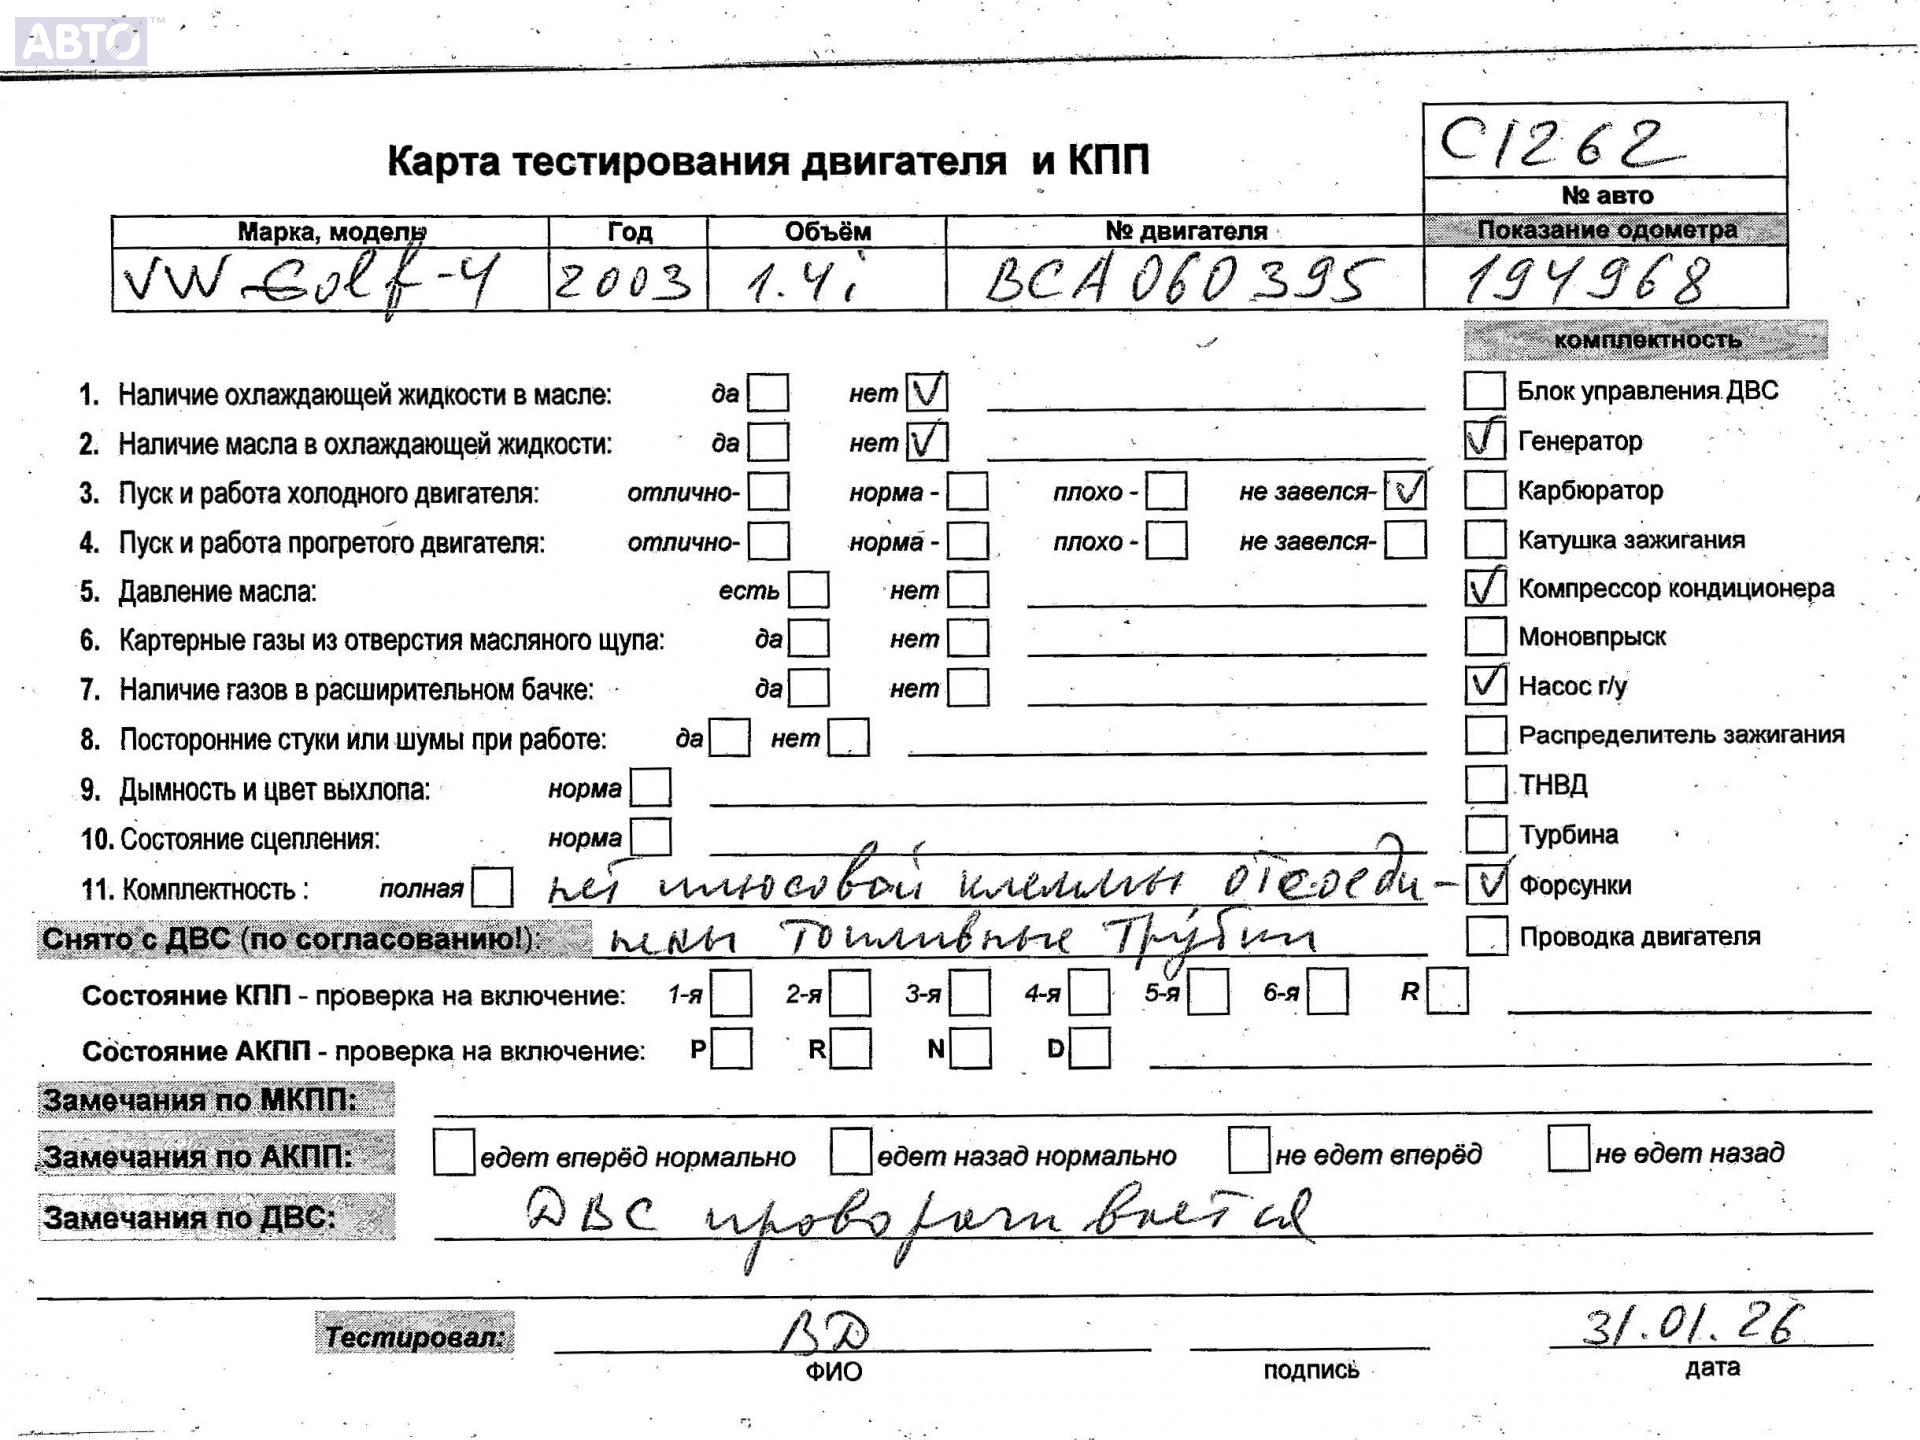 АВТО™
Карта тестирования двигателя и КПП
С1262
№ авто
Марка, модель Год Объём № двигателя Показание одометра
VW Golf-4 2003 1.4i BCA060395 194968
комплектность
1. Наличие охлаждающей жидкости в масле: да нет ✓
Блок управления ДВС
2. Наличие масла в охлаждающей жидкости: да нет ✓
✓ Генератор
3. Пуск и работа холодного двигателя: отлично- норма - плохо - не завелся- ✓
Карбюратор
4. Пуск и работа прогретого двигателя: отлично- норма - плохо - не завелся-
Катушка зажигания
5. Давление масла: есть нет
✓ Компрессор кондиционера
6. Картерные газы из отверстия масляного щупа: да нет
Моновпрыск
7. Наличие газов в расширительном бачке: да нет
✓ Насос г/у
8. Посторонние стуки или шумы при работе: да нет
Распределитель зажигания
9. Дымность и цвет выхлопа: норма
ТНВД
10. Состояние сцепления: норма
Турбина
11. Комплектность : полная нет плюсовой клеммы отсоеди-
✓ Форсунки
Снято с ДВС (по согласованию!): нены топливные трубки
Проводка двигателя
Состояние КПП - проверка на включение: 1-я 2-я 3-я 4-я 5-я 6-я R
Состояние АКПП - проверка на включение: P R N D
Замечания по МКПП:
Замечания по АКПП: едет вперёд нормально едет назад нормально не едет вперёд не едет назад
Замечания по ДВС: ДВС проворачивается
Тестировал: ВД 31.01.26
ФИО подпись дата